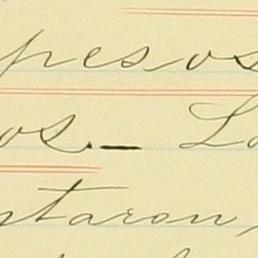 pesos
os._ La
ntaron,